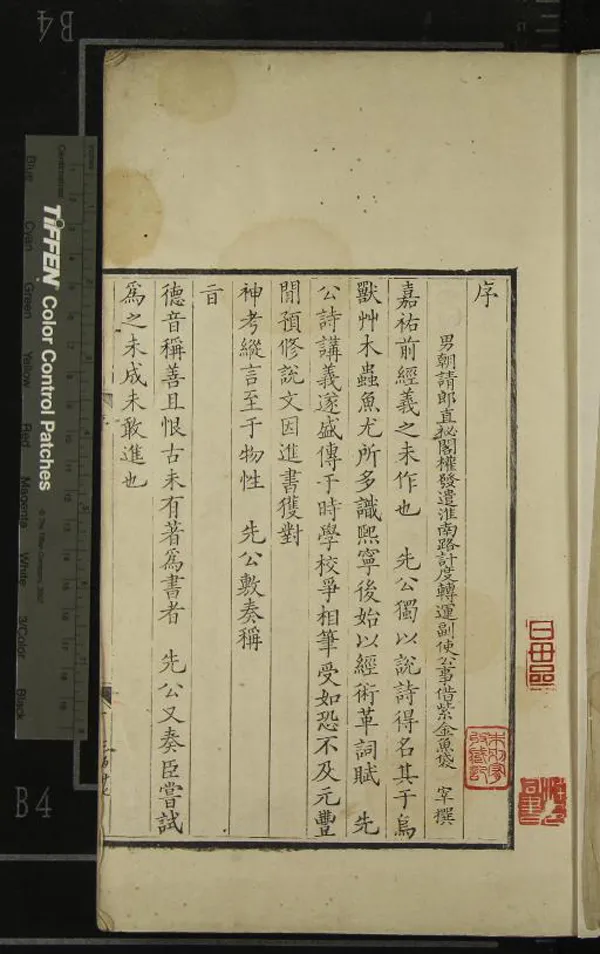 序
男朝請郎直祕閣權發遣淮南路計度轉運副使公事借紫金魚袋 宰撰
嘉祐前經義之未作也 先公獨以說詩得名其于鳥
獸艸木蟲魚尤所多識熙寧後始以經術革詞賦 先
公詩講義遂盛傳于時學校爭相筆受如恐不及元豐
閒預修說文因進書獲對
神考縱言至于物性 先公敷奏稱
旨
德音稱善且恨古未有著爲書者 先公又奏臣嘗試
爲之未成未敢進也
B4
TIFFEN Color Control Patches
© The Tiffen Company, 2007
Centimetres
Blue
Cyan
Green
Yellow
Red
Magenta
White
3/Color
Black
B4